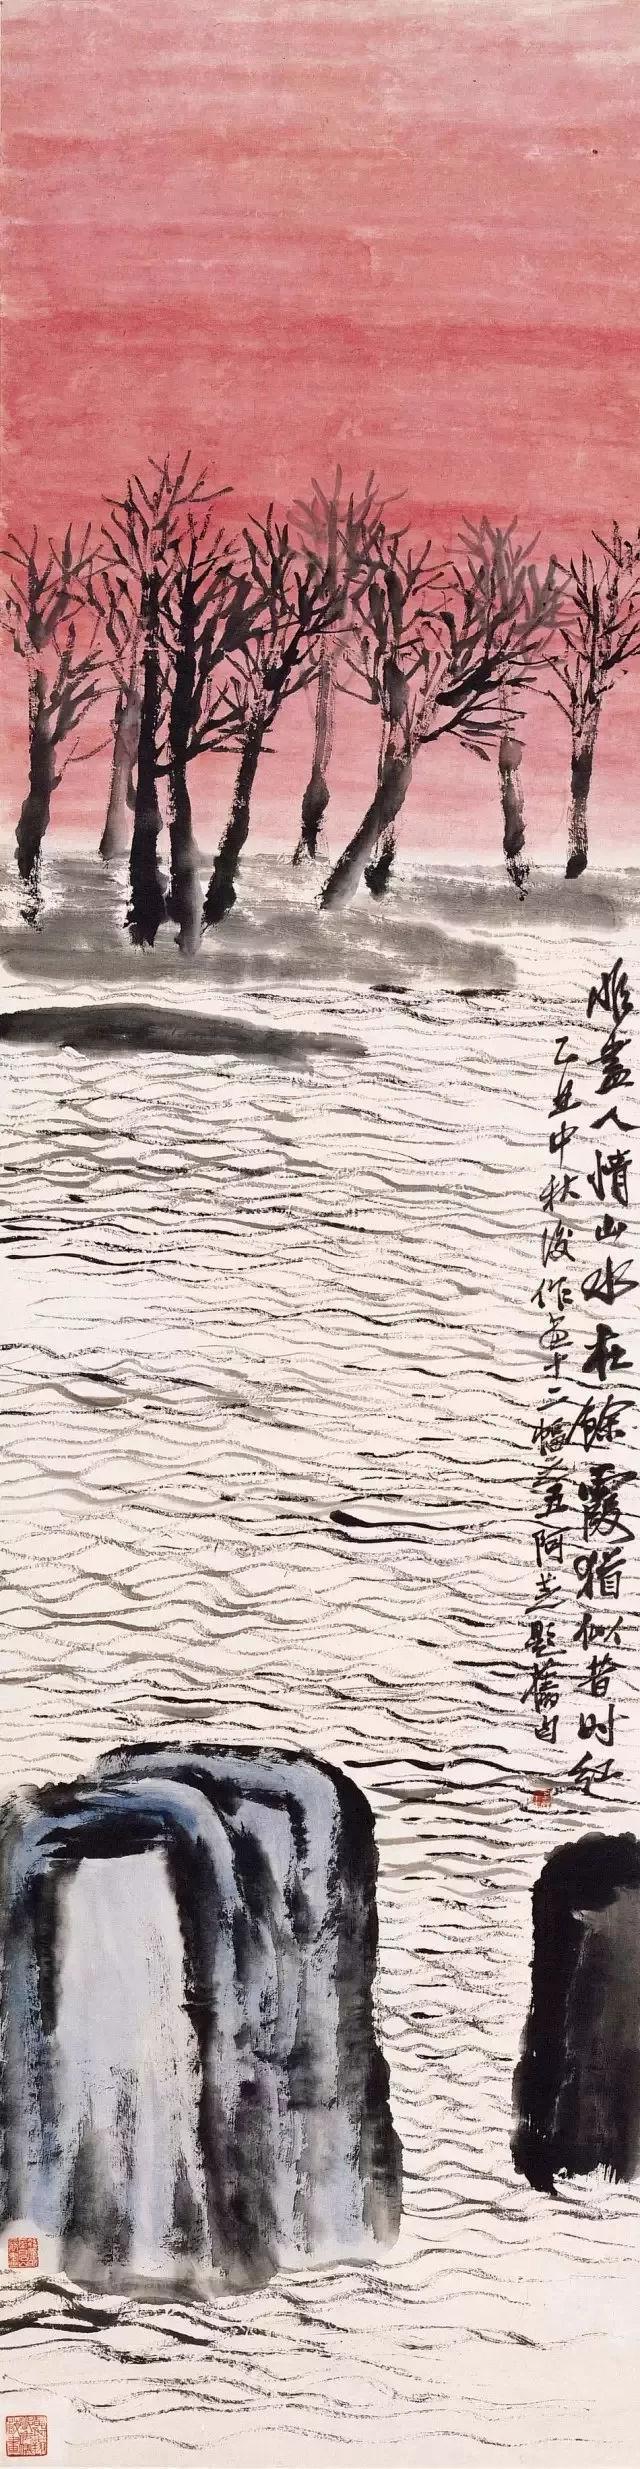 盡人情山水在餘霞猶似昔時紅
乙丑中秋後作畫十二幅之五阿芝題舊句